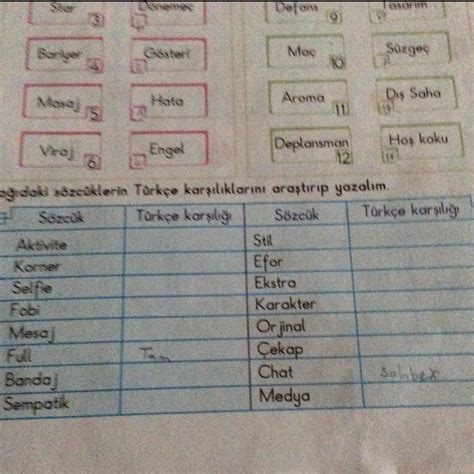 Star 3 Dönemeç Defans 9 Tasarım
Bariyer 4 Gösteri Maç 10 Süzgeç
Masaj 5 Hata Aroma 11 Dış Saha
Viraj 6 Engel Deplansman 12 Hoş koku
sözcüklerin Türkçe karşılıklarını araştırıp yazalım.
Sözcük Türkçe karşılığı Sözcük Türkçe karşılığı
Aktivite Stil
Korner Efor
Selfie Ekstra
Fobi Karakter
Mesaj Orjinal
Full Tam Çekap
Bandaj Chat
Sempatik Medya